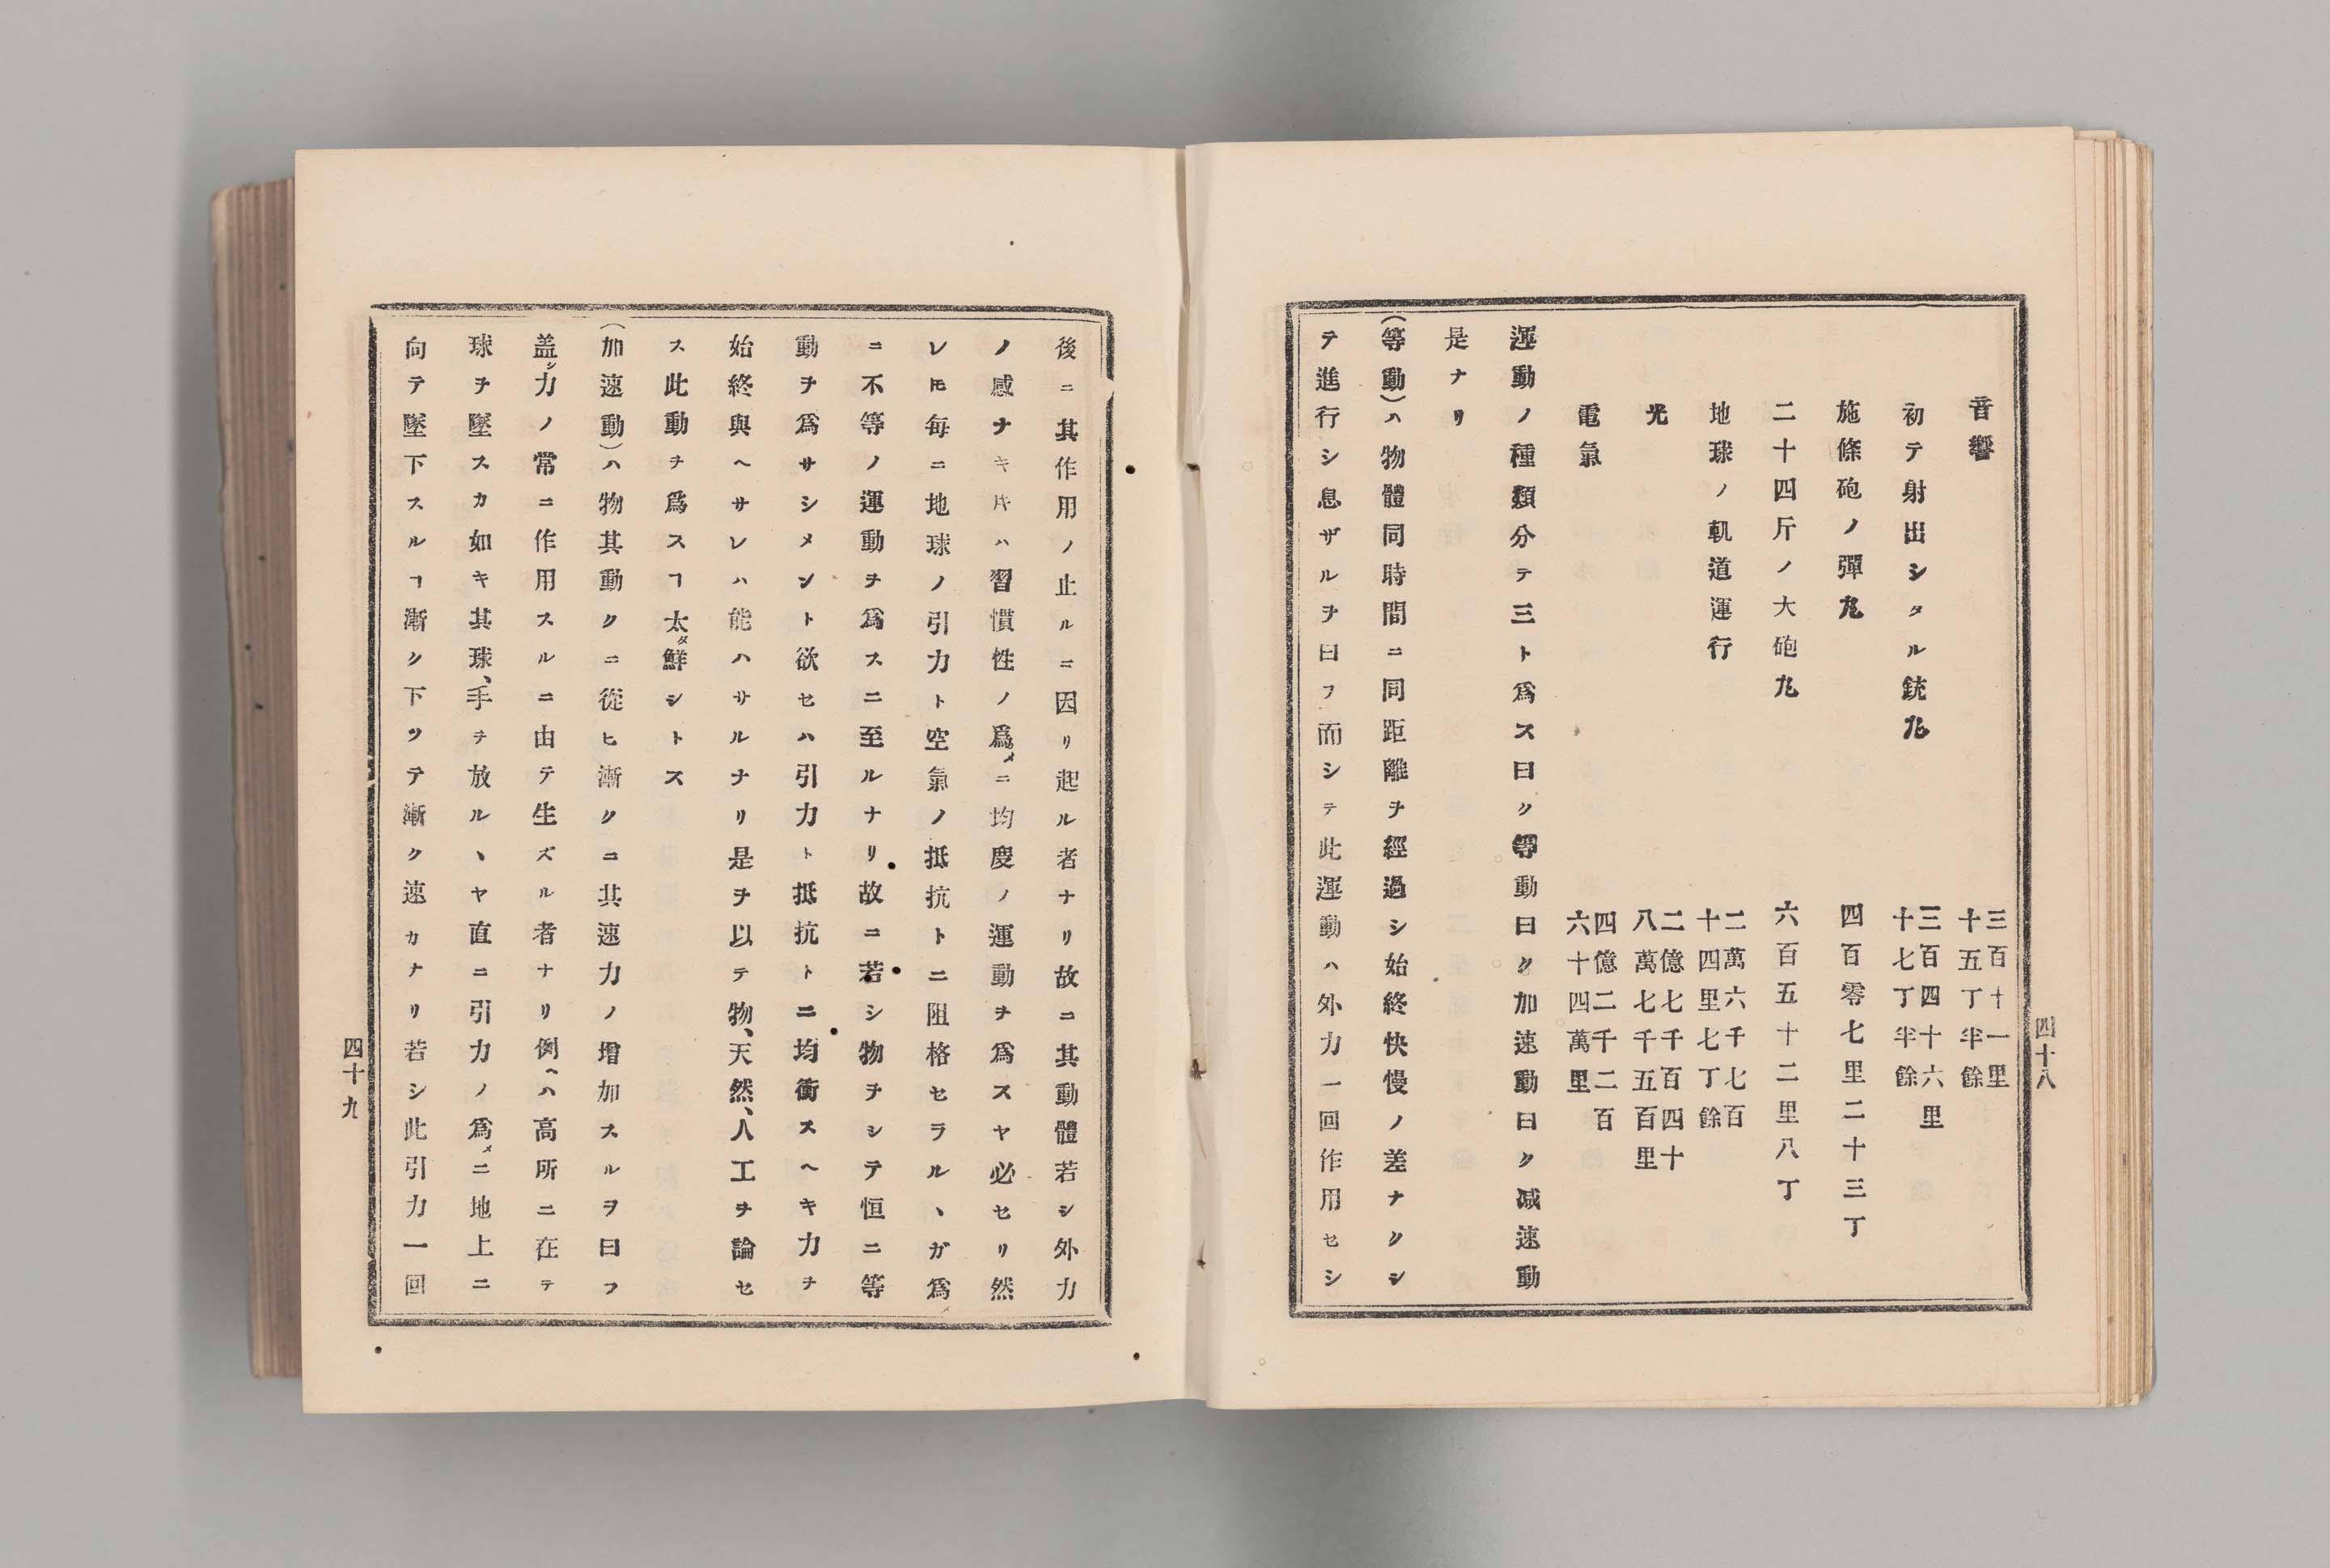 四十八
音響　三百十一里
十五丁半餘
初テ射出シタル銃丸　三百四十六里
十七丁半餘
施條砲ノ彈丸　四百零七里二十三丁
二十四斤ノ大砲丸　六百五十二里八丁
地球ノ軌道運行　二萬六千七百
十四里七丁餘
光　二億七千百四十
八萬七千五百里
電氣　四億二千二百
六十四萬里
運動ノ種類分テ三ト爲ス曰ク等動曰ク加速動曰ク减速動
是ナリ
(等動)ハ物體同時間ニ同距離ヲ經過シ始終快慢ノ差ナクシ
テ進行シ息ザルヲ曰フ而シテ此運動ハ外力一回作用セシ
後ニ其作用ノ止ルニ因リ起ル者ナリ故ニ其動體若シ外力
ノ感ナキ𪜈ハ習慣性ノ爲メニ均慶ノ運動ヲ爲スヤ必セリ然
レ𪜈毎ニ地球ノ引力ト空氣ノ抵抗トニ阻格セラルヽガ爲
ニ不等ノ運動ヲ爲スニ至ルナリ故ニ若シ物ヲシテ恒ニ等
動ヲ爲サシメント欲セハ引力ト抵抗トニ均衝スヘキ力ヲ
始終與ヘサレハ能ハサルナリ是ヲ以テ物、天然、人工ヲ論セ
ス此動ヲ爲スヿ太タ鮮シトス
(加速動)ハ物其動クニ從ヒ漸クニ其速力ノ增加スルヲ曰フ
盖シ力ノ常ニ作用スルニ由テ生ズル者ナリ例ヘハ高所ニ在テ
球ヲ墜スカ如キ其球、手ヲ放ルヽヤ直ニ引力ノ爲メニ地上ニ
向テ墜下スルヿ漸ク下ツテ漸ク速カナリ若シ此引力一回
四十九